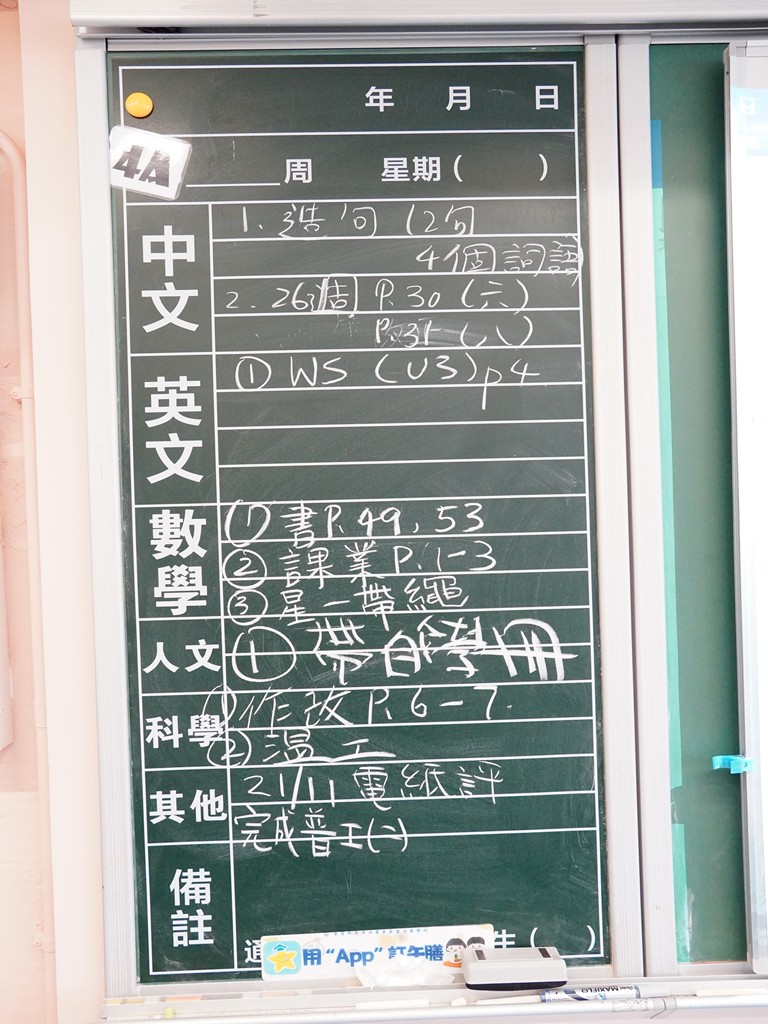 年 月 日
4A
周 星期( )
中文
1. 造句 12句
4個詞語
2. 26週 P.30 (六)
P.31 (八)
英文
① WS (U3) p4
數學
① 書P. 49, 53
② 課業P. 1-3
③ 星一帶繩
人文
① 帶自學
科學
① 作改 P. 6-7
② 溫工
其他
21/11 電紙評
完成普工(二)
備註
生( )
用“App”訂午膳
MAXIFLO